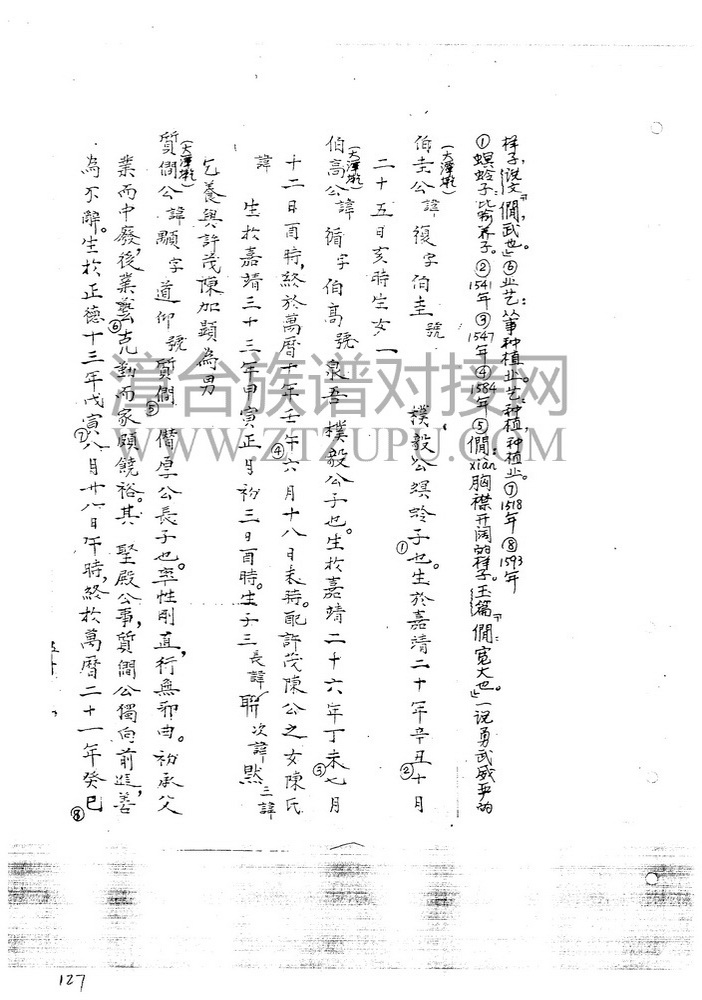 样子,说文『僩,武也』。⑥业艺:从事种植业。艺:种植,种植业。⑦1518年⑧1593年
①螟蛉子:比喻养子。②1541年③1547年④1584年⑤僩:xiàn胸襟开阔的样子。玉篇『僩:宽大也。』一说勇武威严的
(大潭乾)
伯圭公諱復字伯圭號 樸毅公螟蛉子也①。生於嘉靖二十年辛丑②十月
二十五日亥時生女一
(大潭乾)
伯高公諱循字伯高號泉吾樸毅公子也。生於嘉靖二十六年丁未③七月
十二日酉時,終於萬曆十年壬午④六月十八日未時。配許茂陳公之女陳氏
諱 生於嘉靖三十三年甲寅正月初三日酉時。生子三長諱聯次諱默三諱
乞養與許茂陳加顯為男
(大潭乾)
質僩公諱顯字道仰號質僩⑤僭厚公長子也。率性剛直,行無邪曲。初承父
業而中廢,後業藝⑥克勤而家頗饒裕。其聖殿公事,質僩公獨向前進,善
為不辭。生於正德十三年戊寅⑦八月廿八日午時,終於萬曆二十一年癸巳⑧
漳台族谱对接网
WWW.ZTZUPU.COM
127